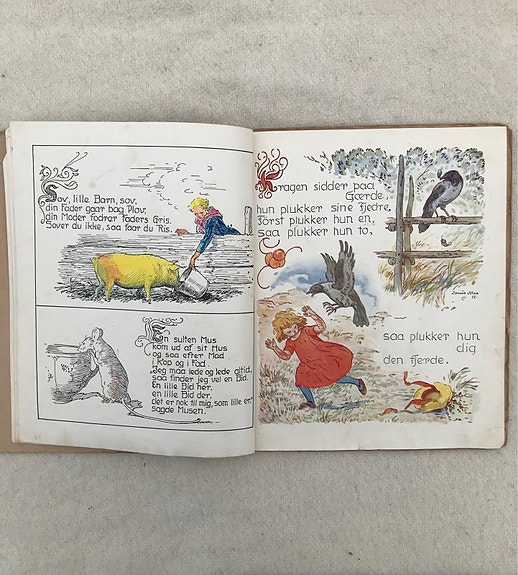 Sov, lille Barn, sov,
din Fader gaar bag Plov,
din Moder fodrer Faders Gris.
Sover du ikke, saa faar du Ris.
En sulten Mus
kom ud af sit Hus
og saa efter Mad
i Kop og i Fad.
Jeg maa lede og lede altid,
saa finder jeg vel en Bid.
En lille Bid her,
en lille Bid der,
det er nok til mig, som lille er,
sagde Musen.
Kragen sidder paa
Gærde,
hun plukker sine Fjedre.
Först plukker hun en,
saa plukker hun to,
saa plukker hun
dig
den fjerde.
Louis Moe